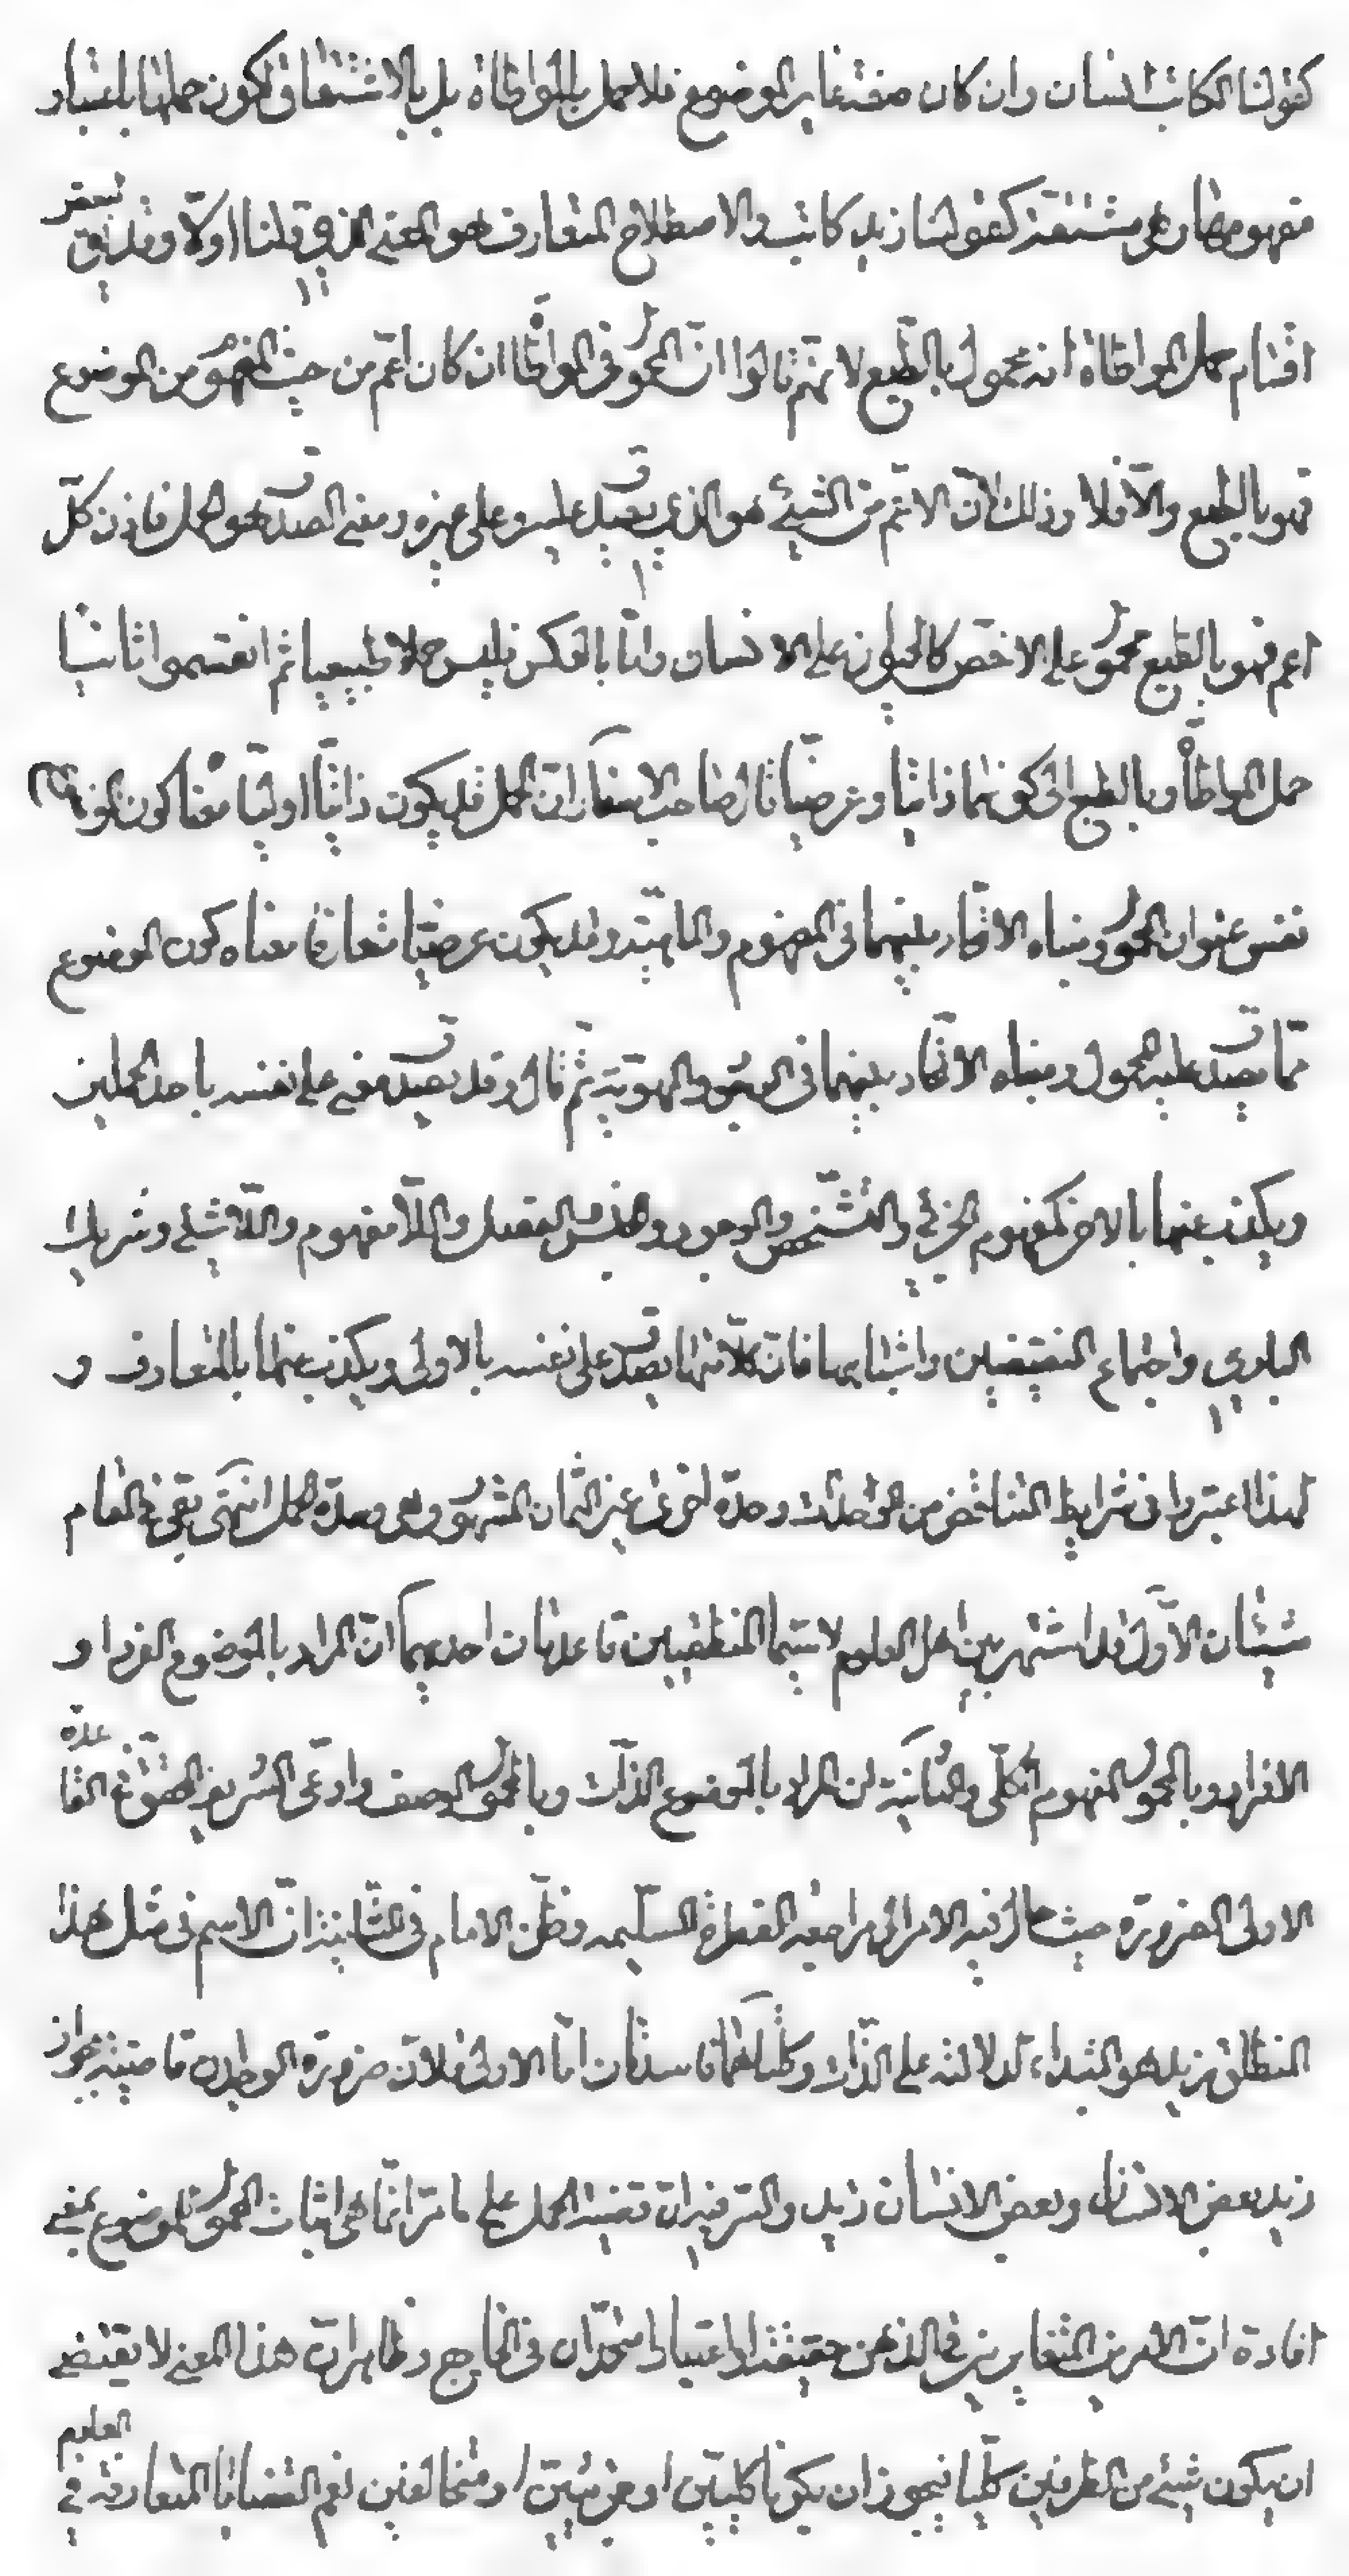 كقولنا الكاتب انسان وان كان صفة غاير الموضوع فلا حمل بالمواطاة بل بالاشتقاق لكون حملها باعتبار
مفهومها على مشتقة كقولنا زيد كاتب والاصطلاح المتعارف هو المعنى الذي قلنا اولا وقد بقى لبعض
اقسام حمل المواطاة انه محمول بالطبع لانهم قالوا ان المحمول في المواطاة ان كان اعم من حيث المفهوم من الموضوع
فهو بالطبع والا فلا وذلك لان الاعم من الشيئ هو الذي يصدق عليه وعلى غيره ومعنى الصدق هو الحمل فاذن كل
اعم فهو بالطبع محمول على الاخص كالحيوان على الانسان واما بالعكس فليس حملا طبيعيا ثم انقسموا ثانيا
حمل المواطاة وبالطبع الى كونهما ذاتيا وعرضيا قال صاحب الاسفار ان الحمل قد يكون ذاتيا اوليا معناه كون الموضوع
نفس عنوان المحمول ومبناه الاتحاد بينهما في المفهوم والماهية وقد يكون عرضيا متعارفا معناه كون الموضوع
مما يصدق عليه المحمول ومبناه الاتحاد بينهما في الوجود والهوية ثم قال وقد يصدق معنى على نفسه باحد الحملين
ويكذب عنها بالاخر كمفهوم الجزئي والتشخص والوجود والجنس والفصل واللامفهوم واللاشيئ وشريك
الباري واجتماع النقيضين واشباهها فان كلا منها يصدق على نفسه بالاولى ويكذب عنها بالمتعارف و
لهذا اعتبروا في شرايط التناقض من الوحدات وحدة اخرى غير الثمان المشهور وهي وحدة الحمل انتهى بقى في المقام
شيئان الاول قد اشتهر بين اهل العلوم لا سيما المنطقيين قاعدتان احديهما ان المراد بالموضوع الفرد او
الافراد وبالمحمول المفهوم الكلي والثانية ان المراد بالموضوع الذات وبالمحمول الوصف وادعى الشريف المحقق في القاعدة
الاولى الضرورة حيث احال فيه الامر الى مراجعة الفطرة السليمه وظن الامام في الثانية ان الاسم في مثل هذا
المنطلق زيد هو المبتداء لدلالته على الذات وكلتاهما فاسدتان اما الاولى فلان ضرورة الوجدان قاضية بجواز
زيد بعض الانسان وبعض الانسان زيد والسر فيه ان قضية الحمل على ما مر انما هي اثبات المحمول للموضوع بمعنى
افادة ان الامرين المتغايرين في الذهن حقيقة او اعتبارا متحدان في الخارج وظاهر ان هذا المعنى لا يقتضى
ان يكون شيئ من الطرفين كليا فيجوز ان يكونا كليين او جزئيين او متخالفين نعم القضايا المتعارفة في العلوم